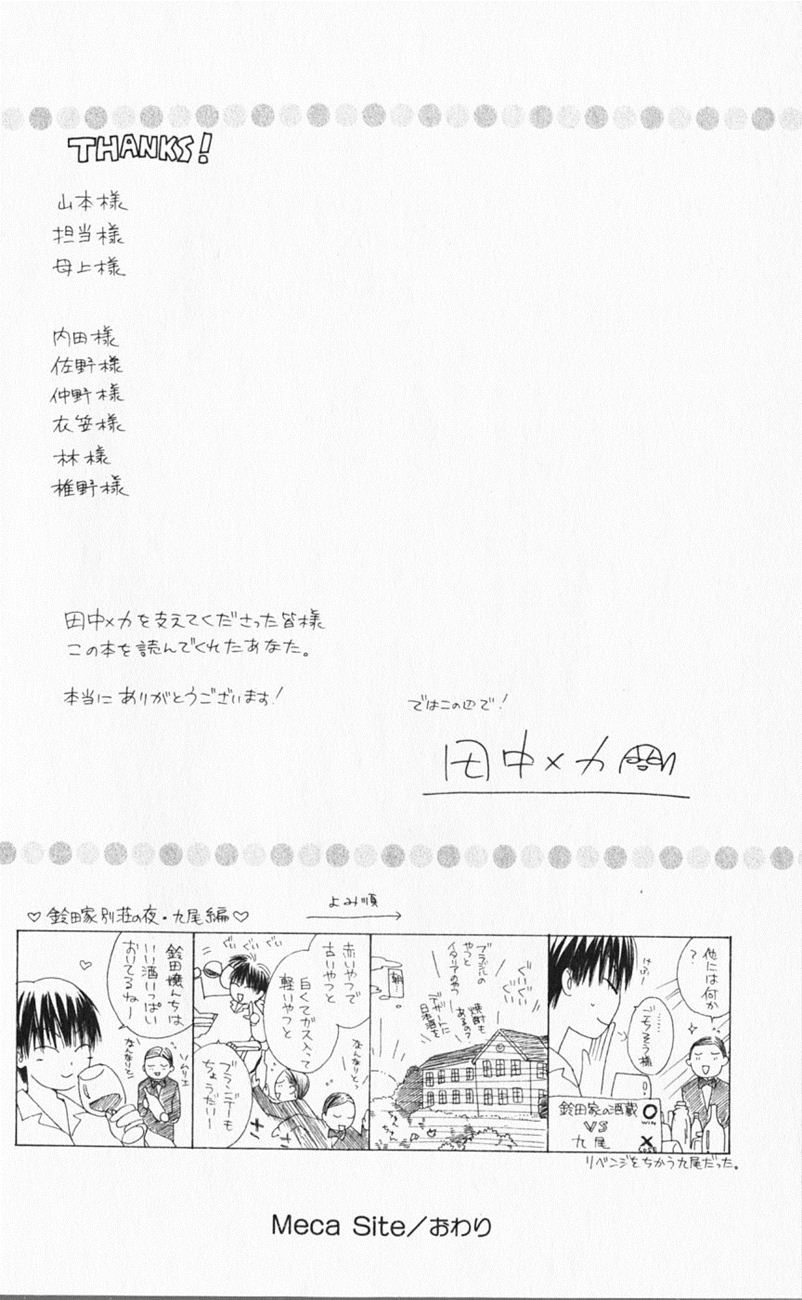 THANKS!
山本様
担当様
母上様
内田様
佐野様
仲野様
衣笠様
林様
椎野様
田中メカを支えてくださった皆様
この本を読んでくれたあなた。
本当にありがとうございます!
ではこの辺で!
田中メカ
♡鈴田家別荘の夜・九尾編♡
よみ順
鈴田嬢んちは
いい酒いっぱい
おいてるねー
なんなりと
ソムリエ
ぐい ぐい ぐい
赤いやつで
古いやつと
白くてガス入って
軽いやつと
なんなりと。
ブランデーも
ちょうだいー
サッ
サッ
ぐい
ぐい
ブラジルの
やつと
イタリアのやつ
焼酎も
あるの?
デザートに
日本酒を
朝
他には何か
?
けぷー
ごちそう様
鈴田家の酒蔵 ○
WIN
VS
九尾 ×
LOSE
リベンジをちかう九尾だった。
Meca Site/おわり